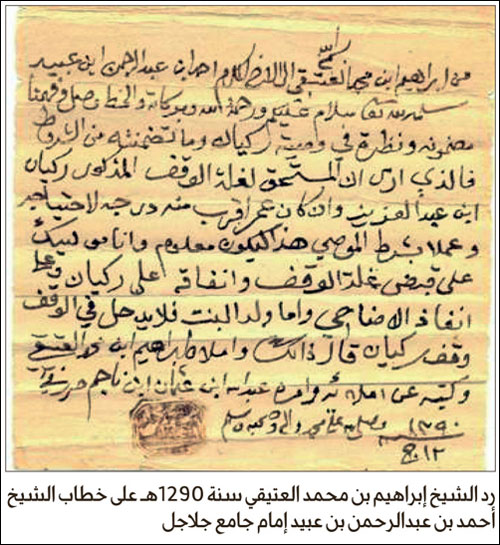 من ابراهيم ابن محمد العتيقي الى الاخ المكرم احمد ابن عبدالرحمن ابن عبيد
سلمه الله تعا سلام عليكم ورحمة الله وبركاته والخط وصل وفهمنا
مضمونه ونظرة في وصية ركيان وما تضمنته من الشروط
فالذي ارى ان المستحق لغلة الوقف المذكور ركيان
ابن عبد العزيز وان كان عمر اقرب منه درجه لاحتياجه
وعملا بشرط الموصي هذا ليكون معلوم وانا موكلك
على قبض غلة الوقف وانفاقه اعلى ركيان وعلى
انفاذ الاضاحي واما ولد البنت فلا يدخل في الوقف
وقف ركيان قال ذالك واملاه ابراهيم ابن محمد العتيقي
وكتبه عن املائه وامره عبدالله ابن عثمان ابن ناجم حرر في
١٢٩٠ وصلى الله على محمد واله وصحبه وسلم
١٢ ج
رد الشيخ إبراهيم بن محمد العتيقي سنة 1290هـ على خطاب الشيخ
أحمد بن عبدالرحمن بن عبيد إمام جامع جلاجل